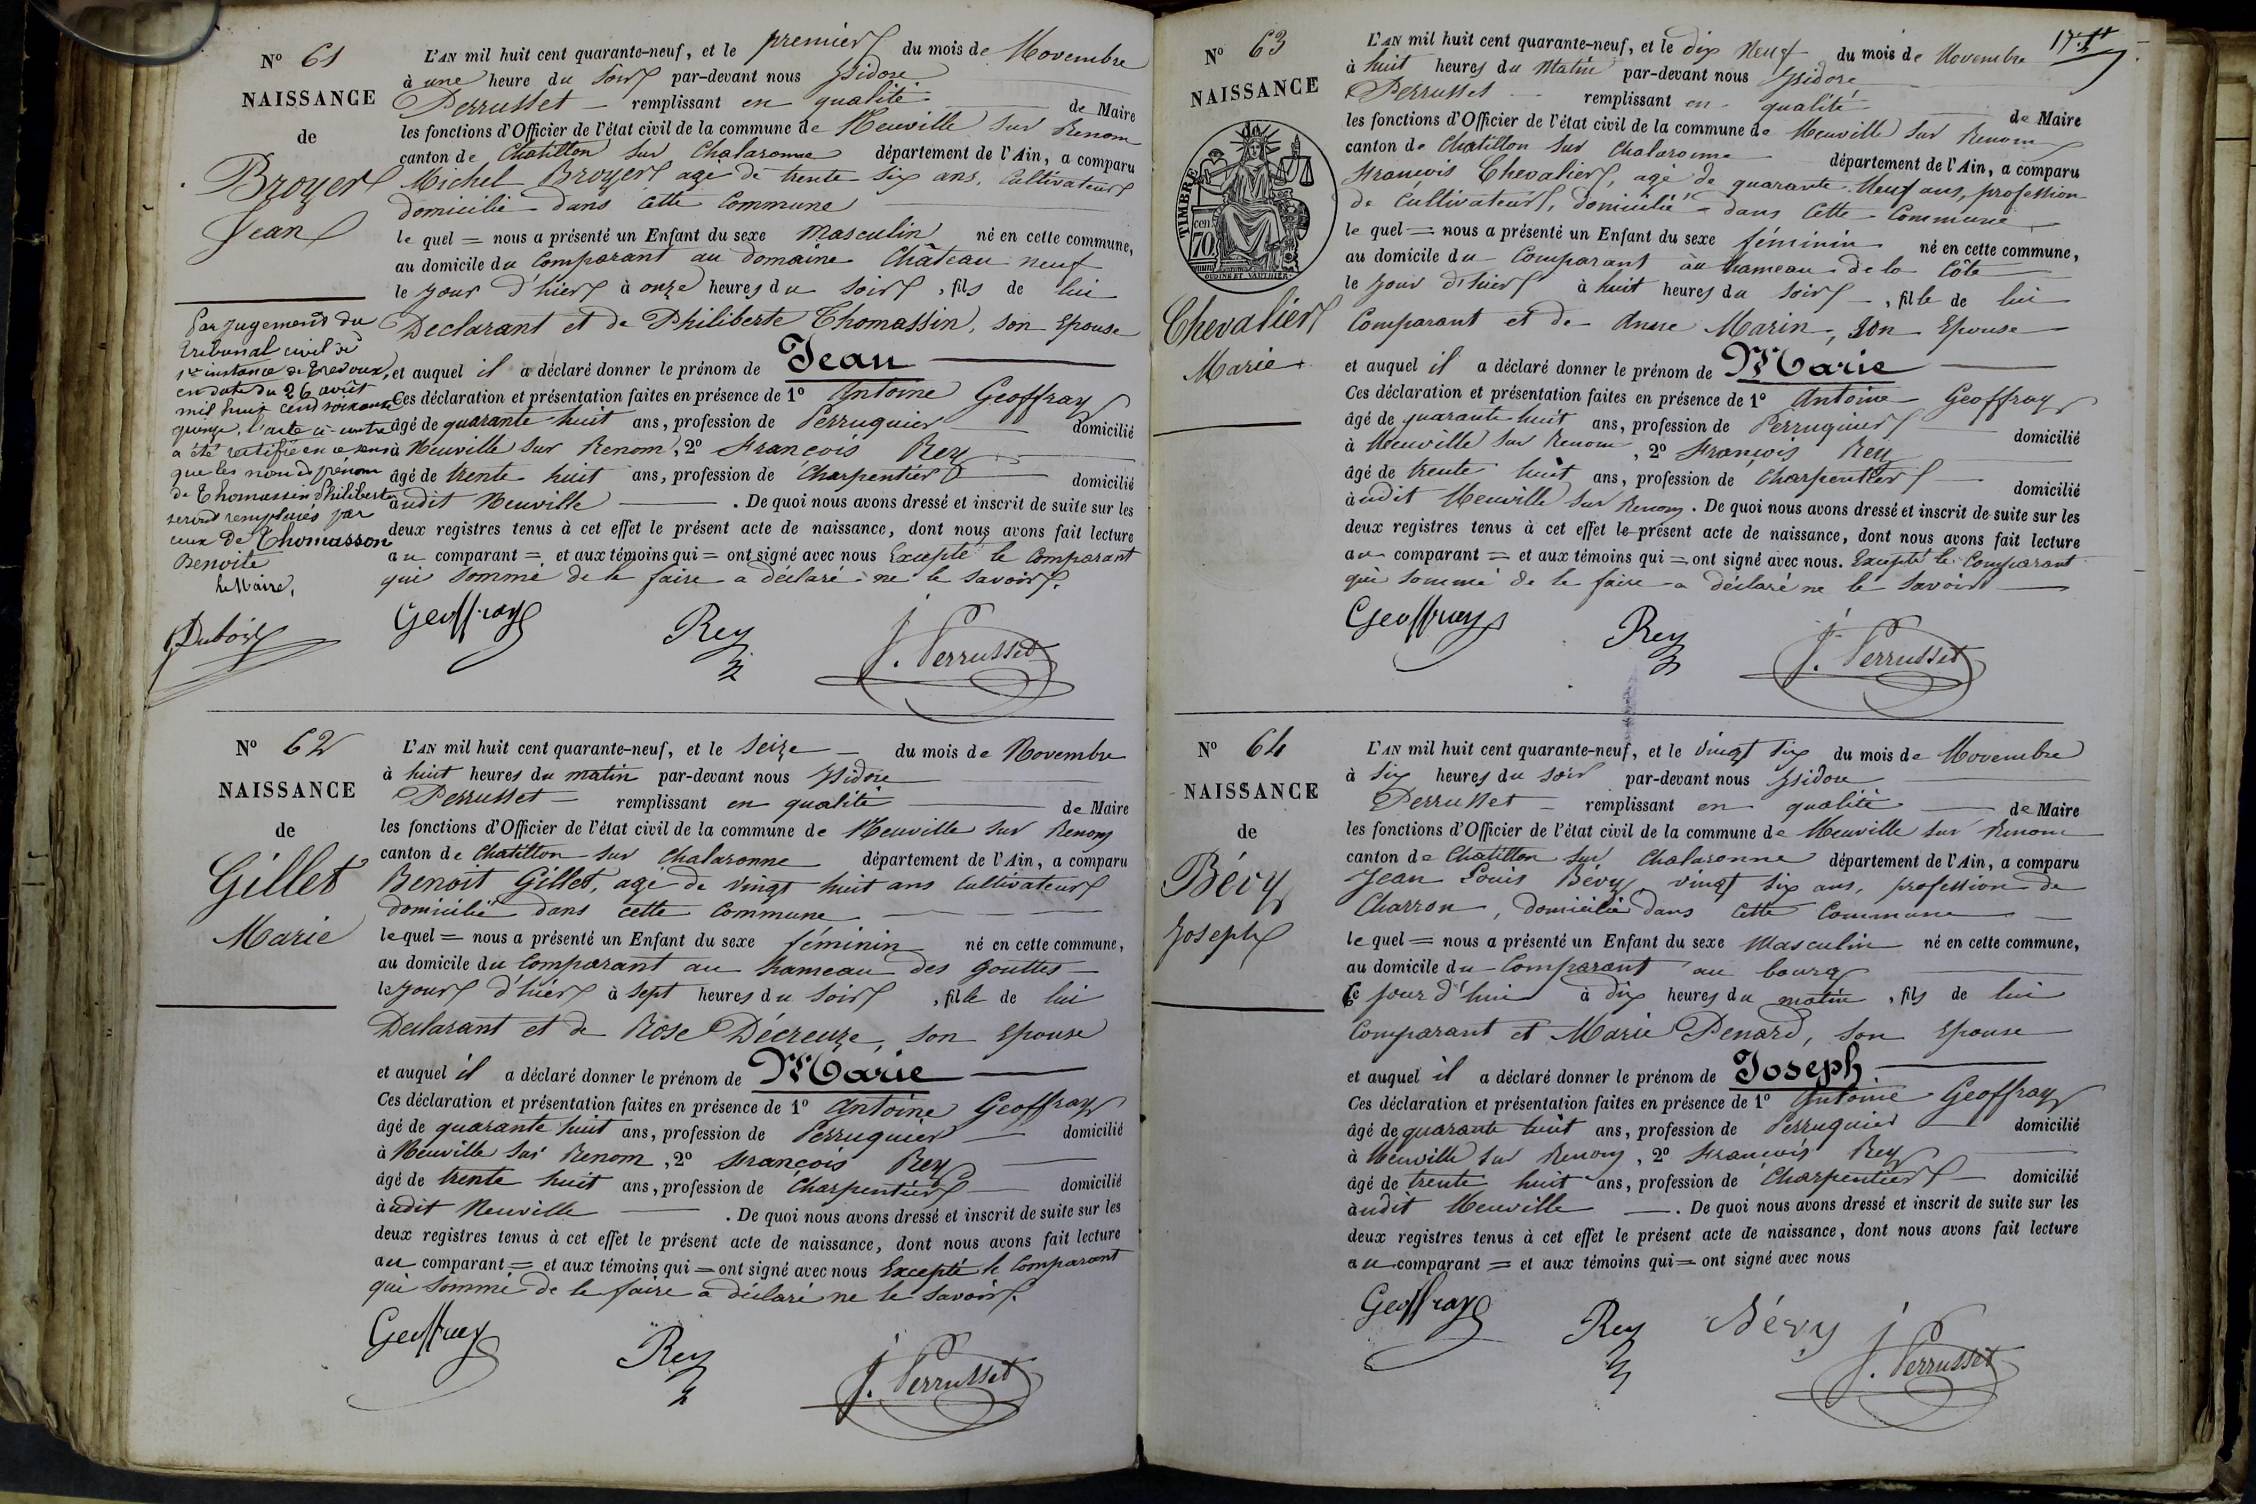 N° 61
NAISSANCE
de
Broyer
Jean
L'AN mil huit cent quarante-neuf, et le premier du mois de Novembre
à une heure du soir par-devant nous Isidore
Perrusset — remplissant en qualité — de Maire
les fonctions d'Officier de l'état civil de la commune de Neuville sur Renom
canton de Chatillon sur Chalaronne département de l'Ain, a comparu
Michel Broyer agé de trente six ans, Cultivateur
domicilié dans cette Commune —
le quel = nous a présenté un Enfant du sexe masculin né en cette commune,
au domicile du Comparant au domaine Château neuf
le jour d'hier à onze heures du soir, fils de lui
Declarant et de Philiberte Thomassin, son Epouse
et auquel il a déclaré donner le prénom de Jean —
Ces déclaration et présentation faites en présence de 1° Antoine Geoffray
âgé de quarante huit ans, profession de Perruquier — domicilié
à Neuville sur Renom, 2° François Rey —
âgé de trente huit ans, profession de Charpentier — domicilié
àudit Neuville — . De quoi nous avons dressé et inscrit de suite sur les
deux registres tenus à cet effet le présent acte de naissance, dont nous avons fait lecture
au comparant = et aux témoins qui = ont signé avec nous Excepté le Comparant
qui sommé de le faire a déclaré ne le savoir.
Geoffray Rey J. Perrusset
Par jugement du
tribunal civil de
1re instance de Trévoux,
en date du 26 août
mil huit cent soixante
quinze, l'acte ci-contre
a été rectifié en ce sens
que les nom et prénom
de Thomassin Philiberte
seront remplacés par
ceux de Thomasson
Benoite
Le Maire,
Dubois
N° 62
NAISSANCE
de
Gillet
Marie
L'AN mil huit cent quarante-neuf, et le seize — du mois de Novembre
à huit heures du matin par-devant nous Isidore —
Perrusset — remplissant en qualité — de Maire
les fonctions d'Officier de l'état civil de la commune de Neuville sur Renom
canton de Chatillon sur Chalaronne département de l'Ain, a comparu
Benoit Gillet, agé de vingt huit ans Cultivateur
domicilié dans cette Commune —
le quel = nous a présenté un Enfant du sexe féminin né en cette commune,
au domicile du Comparant au hameau des Gouttes —
le jour d'hier à sept heures du soir, fille de lui
Declarant et de Rose Décreuze, son Epouse
et auquel il a déclaré donner le prénom de Marie —
Ces déclaration et présentation faites en présence de 1° Antoine Geoffray
âgé de quarante huit ans, profession de Perruquier — domicilié
à Neuville sur Renom, 2° François Rey —
âgé de trente huit ans, profession de Charpentier — domicilié
àudit Neuville — . De quoi nous avons dressé et inscrit de suite sur les
deux registres tenus à cet effet le présent acte de naissance, dont nous avons fait lecture
au comparant = et aux témoins qui = ont signé avec nous Excepté le Comparant
qui sommé de le faire a déclaré ne le savoir.
Geoffray Rey J. Perrusset
N° 63
NAISSANCE
de
TIMBRE
70
cen
OUDINE ET VAUTHIER
Chevalier
Marie
L'AN mil huit cent quarante-neuf, et le dix Neuf du mois de Novembre
à huit heures du Matin par-devant nous Isidore
Perrusset — remplissant en qualité — de Maire
les fonctions d'Officier de l'état civil de la commune de Neuville sur Renom
canton de Chatillon sur Chalaronne département de l'Ain, a comparu
François Chevalier, agé de quarante Neuf ans, profession
de Cultivateur, domicilié dans Cette Commune
le quel = nous a présenté un Enfant du sexe féminin né en cette commune,
au domicile du Comparant au hameau de la Côte
le jour d'hier à huit heures du soir —, fille de lui
Comparant et de Anne Marin, Son Epouse
et auquel il a déclaré donner le prénom de Marie —
Ces déclaration et présentation faites en présence de 1° Antoine Geoffray
âgé de quarante huit ans, profession de Perruquier — domicilié
à Neuville sur Renom, 2° François Rey
âgé de trente huit ans, profession de Charpentier — domicilié
àudit Neuville sur Renom. De quoi nous avons dressé et inscrit de suite sur les
deux registres tenus à cet effet le présent acte de naissance, dont nous avons fait lecture
au comparant = et aux témoins qui = ont signé avec nous. Excepté le Comparant
qui sommé de le faire a déclaré ne le savoir —
Geoffray Rey J. Perrusset
N° 64
NAISSANCE
de
Bévy
Joseph
L'AN mil huit cent quarante-neuf, et le vingt six du mois de Novembre
à six heures du soir par-devant nous Isidore —
Perrusset — remplissant en qualité — de Maire
les fonctions d'Officier de l'état civil de la commune de Neuville sur Renom
canton de Chatillon sur Chalaronne département de l'Ain, a comparu
Jean Louis Bévy, vingt six ans, profession de
Charron, domicilié dans Cette Commune —
le quel = nous a présenté un Enfant du sexe Masculin né en cette commune,
au domicile du Comparant au bourg —
Ce jour d'hui à dix heures du matin, fils de lui
Comparant et Marie Penard, son Epouse
et auquel il a déclaré donner le prénom de Joseph —
Ces déclaration et présentation faites en présence de 1° Antoine Geoffray
âgé de quarante huit ans, profession de Perruquier — domicilié
à Neuville sur Renom, 2° François Rey —
âgé de trente huit ans, profession de Charpentier — domicilié
àudit Neuville — . De quoi nous avons dressé et inscrit de suite sur les
deux registres tenus à cet effet le présent acte de naissance, dont nous avons fait lecture
au comparant = et aux témoins qui = ont signé avec nous
Geoffray Rey Bévy J. Perrusset